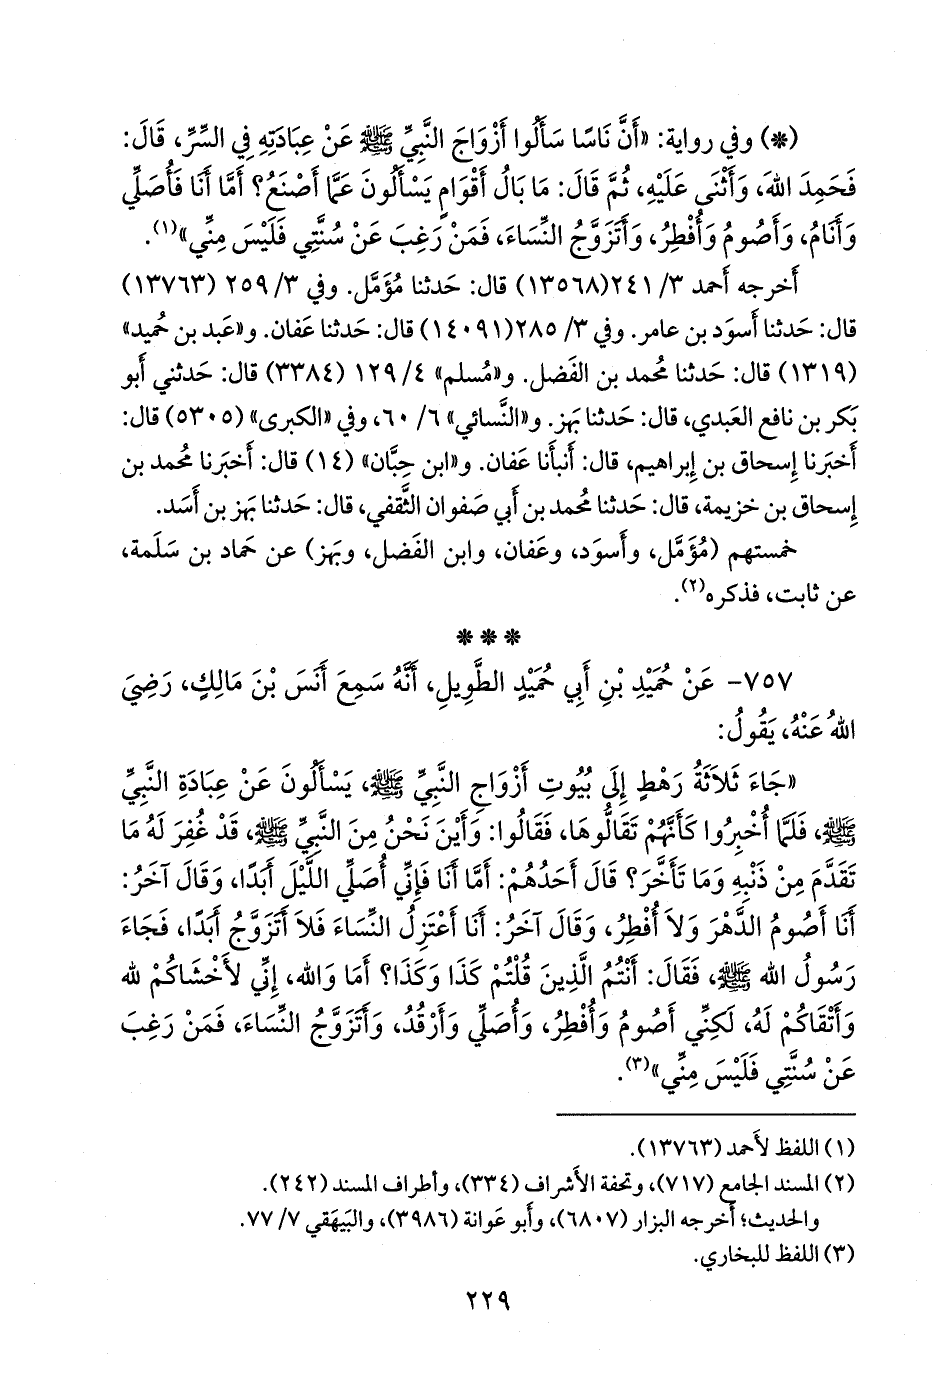 (*) وفي رواية: «أَنَّ نَاسًا سَأَلُوا أَزْوَاجَ النَّبِيِّ ﷺ عَنْ عِبَادَتِهِ فِي السِّرِّ، قَالَ:
فَحَمِدَ اللهَ، وَأَثْنَى عَلَيْهِ، ثُمَّ قَالَ: مَا بَالُ أَقْوَامٍ يَسْأَلُونَ عَمَّا أَصْنَعُ؟ أَمَّا أَنَا فَأُصَلِّي
وَأَنَامُ، وَأَصُومُ وَأُفْطِرُ، وَأَتَزَوَّجُ النِّسَاءَ، فَمَنْ رَغِبَ عَنْ سُنَّتِي فَلَيْسَ مِنِّي»(١).
أَخرجه أَحمد ٣/ ٢٤١(١٣٥٦٨) قال: حَدثنا مُؤَمَّل. وفي ٣/ ٢٥٩ (١٣٧٦٣)
قال: حَدثنا أَسوَد بن عامر. وفي ٣/ ٢٨٥(١٤٠٩١) قال: حَدثنا عَفان. و«عَبد بن حُميد»
(١٣١٩) قال: حَدثنا مُحمد بن الفَضل. و«مُسلم» ٤/ ١٢٩ (٣٣٨٤) قال: حَدثني أَبو
بَكر بن نافع العَبدي، قال: حَدثنا بَهز. و«النَّسائي» ٦/ ٦٠، وفي «الكبرى» (٥٣٠٥) قال:
أَخبَرنا إِسحاق بن إِبراهيم، قال: أَنبأَنا عَفان. و«ابن حِبَّان» (١٤) قال: أَخبَرنا مُحمد بن
إِسحاق بن خزيمة، قال: حَدثنا مُحمد بن أَبي صَفوان الثَّقفي، قال: حَدثنا بَهز بن أَسَد.
خمستهم (مُؤَمَّل، وأَسوَد، وعَفان، وابن الفَضل، وبَهز) عن حَماد بن سَلَمة،
عن ثابت، فذكره(٢).
* * *
٧٥٧- عَنْ حُمَيْدِ بْنِ أَبِي حُمَيْدٍ الطَّوِيلِ، أَنَّهُ سَمِعَ أَنَسَ بْنَ مَالِكٍ، رَضِيَ
اللهُ عَنْهُ، يَقُولُ:
«جَاءَ ثَلَاثَةُ رَهْطٍ إِلَى بُيُوتِ أَزْوَاجِ النَّبِيِّ ﷺ، يَسْأَلُونَ عَنْ عِبَادَةِ النَّبِيِّ
ﷺ، فَلَمَّا أُخْبِرُوا كَأَنَّهُمْ تَقَالُّوهَا، فَقَالُوا: وَأَيْنَ نَحْنُ مِنَ النَّبِيِّ ﷺ، قَدْ غُفِرَ لَهُ مَا
تَقَدَّمَ مِنْ ذَنْبِهِ وَمَا تَأَخَّرَ؟ قَالَ أَحَدُهُمْ: أَمَّا أَنَا فَإِنِّي أُصَلِّي اللَّيْلَ أَبَدًا، وَقَالَ آخَرُ:
أَنَا أَصُومُ الدَّهْرَ وَلاَ أُفْطِرُ، وَقَالَ آخَرُ: أَنَا أَعْتَزِلُ النِّسَاءَ فَلاَ أَتَزَوَّجُ أَبَدًا، فَجَاءَ
رَسُولُ اللهِ ﷺ، فَقَالَ: أَنْتُمُ الَّذِينَ قُلْتُمْ كَذَا وَكَذَا؟ أَمَا وَالله، إِنِّي لَأَخْشَاكُمْ لله
وَأَتْقَاكُمْ لَهُ، لَكِنِّي أَصُومُ وَأُفْطِرُ، وَأُصَلِّي وَأَرْقُدُ، وَأَتَزَوَّجُ النِّسَاءَ، فَمَنْ رَغِبَ
عَنْ سُنَّتِي فَلَيْسَ مِنِّي»(٣).
(١) اللفظ لأَحمد (١٣٧٦٣).
(٢) المسند الجامع (٧١٧)، وتحفة الأَشراف (٣٣٤)، وأَطراف المسند (٢٤٢).
والحديث؛ أَخرجه البزار (٦٨٠٧)، وأَبو عَوانة (٣٩٨٦)، والبَيهَقي ٧/ ٧٧.
(٣) اللفظ للبخاري.
٢٢٩